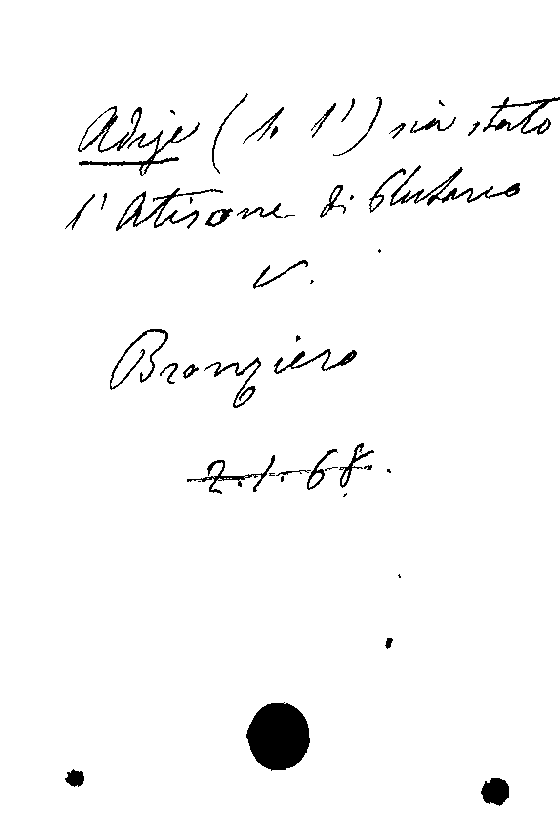 Adige (se l') sia stato
l'Atisone di Plutarco
v.
Bronziero
2.1.68.